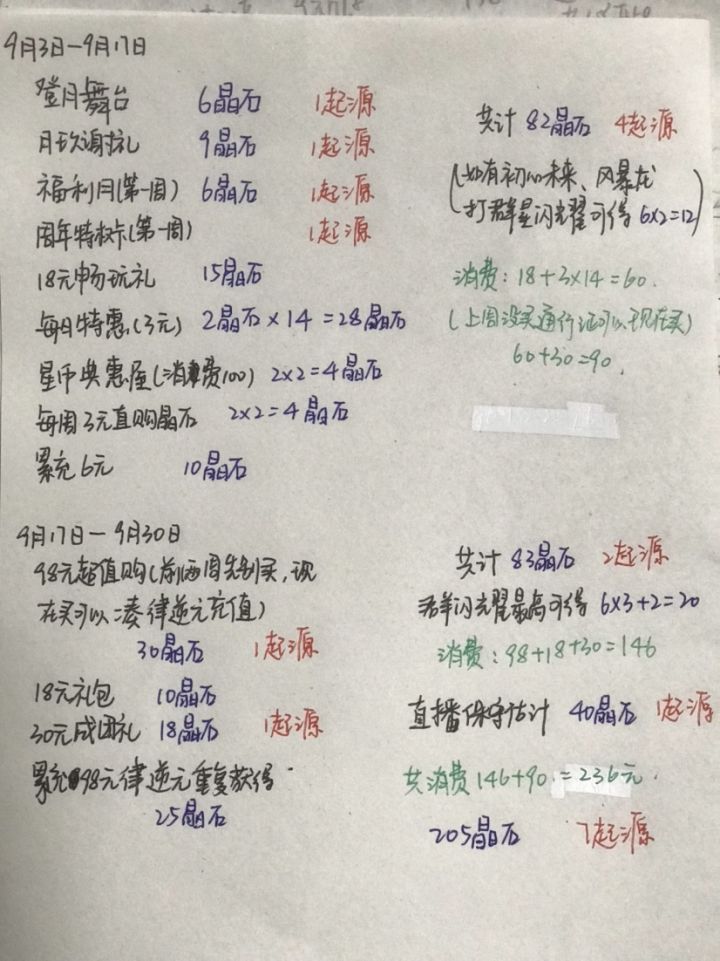 9月3日-9月17日
登月舞台 6晶石 1起源
月玖谢礼 9晶石 1起源
福利月(第一周) 6晶石 1起源
周年特权卡(第一周) 1起源
18元畅玩礼 15晶石
每日特惠(3元) 2晶石×14=28晶石
星币兑惠屋(消费100) 2×2=4晶石
每周3元直购晶石 2×2=4晶石
累充6元 10晶石
共计82晶石 4起源
(如有初心未来、风暴龙
打群星闪耀可得6×2=12)
消费:18+3×14=60.
(上周没买通行证可以现在买)
60+30=90.
9月17日-9月30日
98元超值购(前两周先别买,现
在买可以凑律逆元充值)
30晶石 1起源
18元礼包 10晶石
30元成团礼 18晶石 1起源
累充98元律逆元重复获得
25晶石
共计83晶石 2起源
群闪耀最高可得6×3+2=20
消费:98+18+30=146
直播保守估计 40晶石 1起源
共消费146+90=236元.
205晶石 7起源